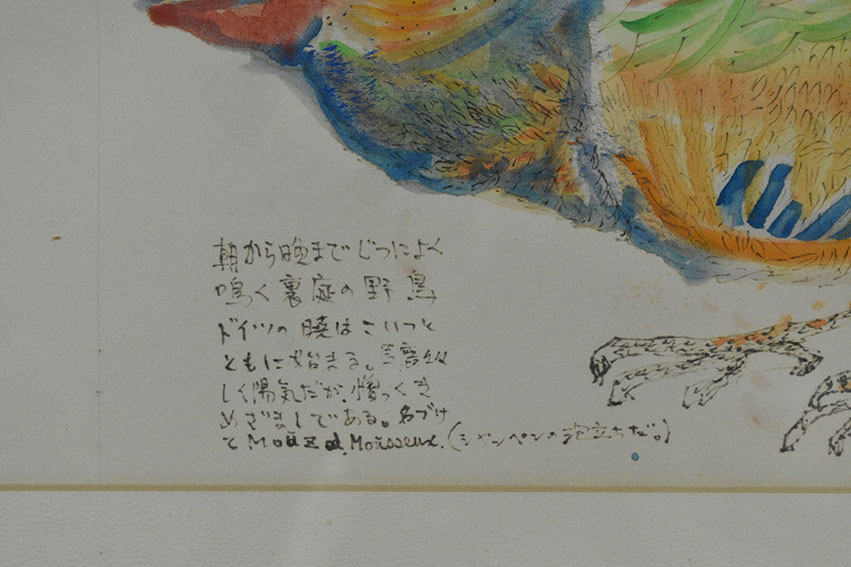 朝から晩まで じつによく
鳴く裏庭の野鳥
ドイツの 暁は こいつと
ともに始まる。
しく陽気だが、憎っくき
めざましである。名づけ
て Mousseux. (シャンペンの泡立ちだ。)